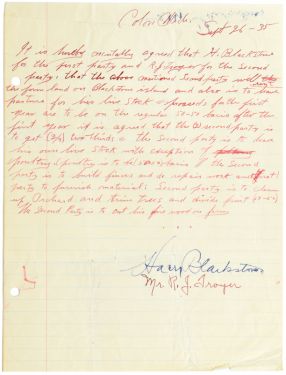 Colon Mich.
Sept 26 - 35
It is hereby mutually agreed that H. Blackstone
for the first party and R. J. Troyer for the Second
party: that the above mentioned Second party will
the farm land on Blackstone island and also is to have
pasture for her live stock & proceeds for the first
year are to be on the regular 50-50 basis after the
first year it is agreed that the second party is
to get (2/3) two thirds & the Second party is to have
his own live stock with exception of
poultry & poultry is to be 50-50 basis & the Second
party is to build fences and do repair work and first
party to furnish materials. Second party is to clean
up Orchard and trim trees and divide fruit (50-50)
The Second Party is to cut his fire wood on farm
Harry Blackstone
Mr. R. J. Troyer